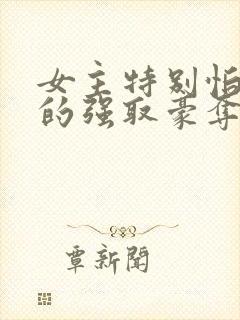 女主特别怕
的强取豪夺
覃新聞